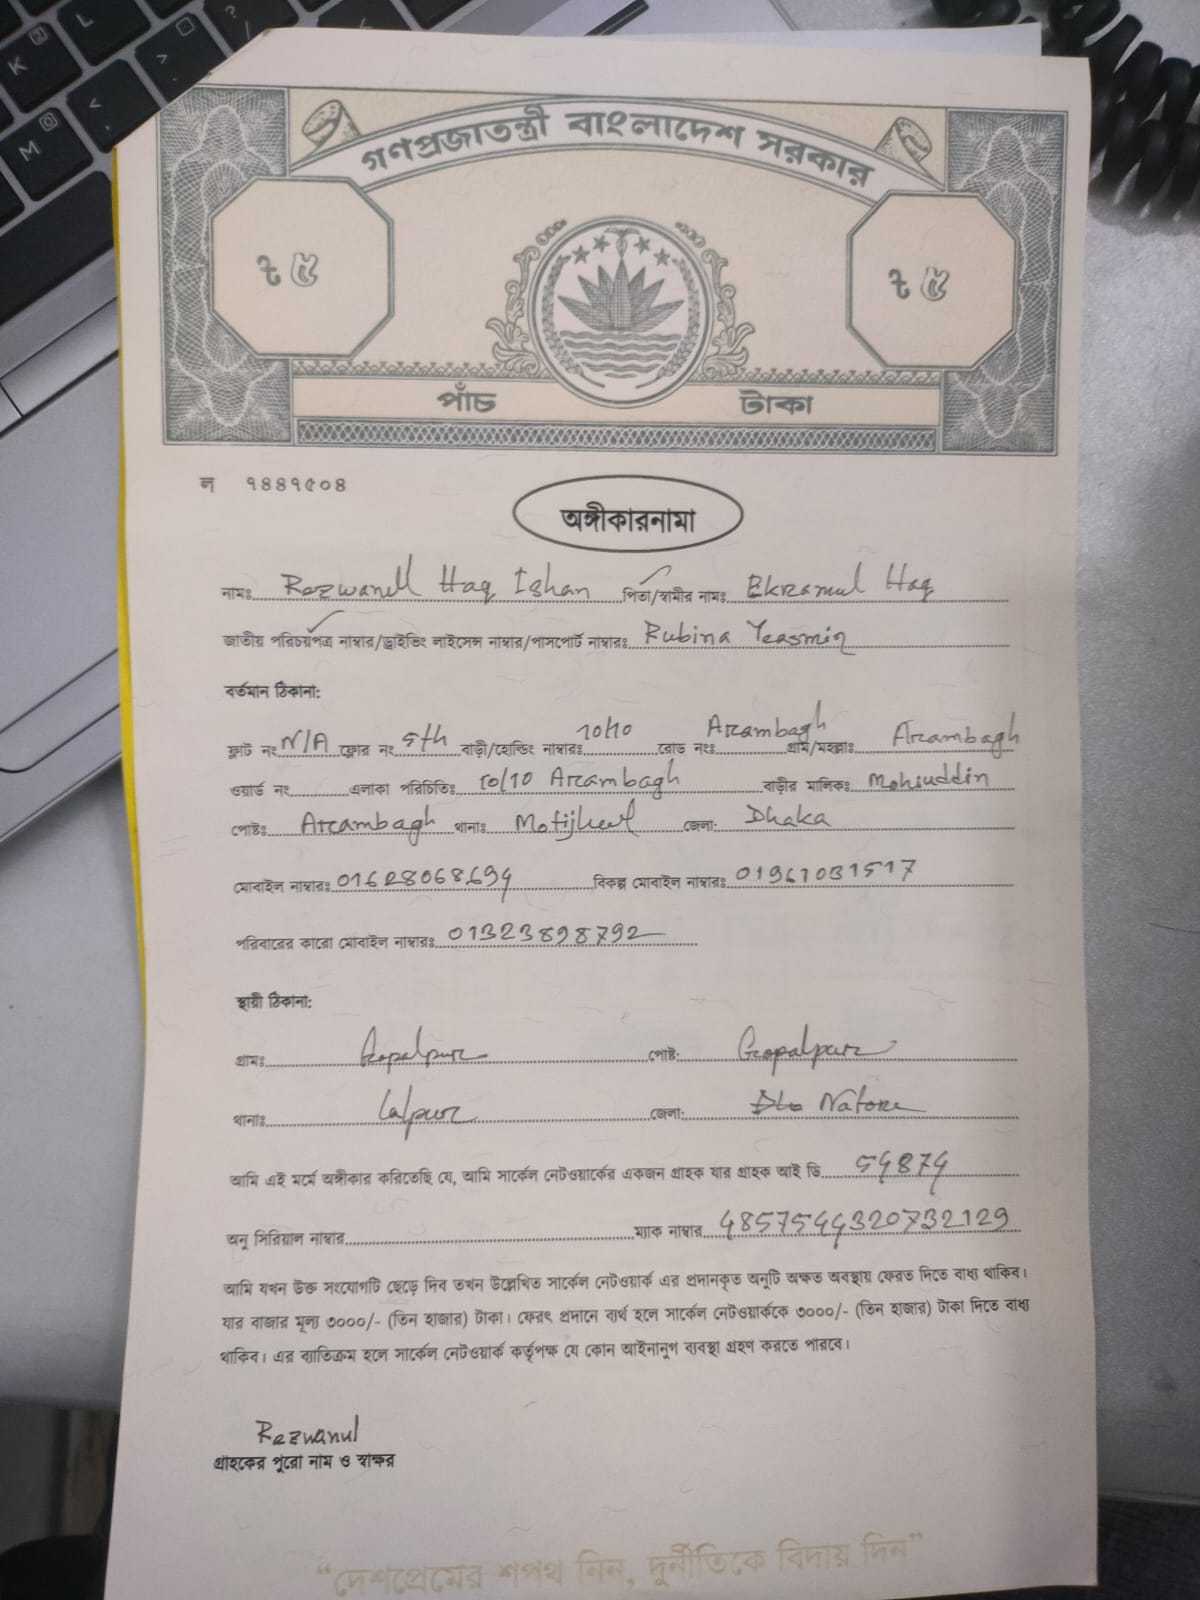 K
L
M
?
<
>
গণপ্রজাতন্ত্রী বাংলাদেশ সরকার
৳ ৫
৳ ৫
পাঁচ টাকা
ন ৭৪৪৭৫০৪
অঙ্গীকারনামা
নামঃ Rezwanul Haq Ishan পিতা/স্বামীর নামঃ Ekramul Haq
জাতীয় পরিচয়পত্র নাম্বার/ড্রাইভিং লাইসেন্স নাম্বার/পাসপোর্ট নাম্বারঃ Rubina Yeasmin
বর্তমান ঠিকানা:
ফ্লাট নং N/A ফ্লোর নং 5th বাড়ী/হোল্ডিং নাম্বারঃ 10/10 রোড নংঃ Arambagh গ্রাম/মহল্লাঃ Arambagh
ওয়ার্ড নং এলাকা পরিচিতিঃ 10/10 Arambagh বাড়ীর মালিকঃ Mohiuddin
পোষ্টঃ Arambagh থানাঃ Motijheel জেলা: Dhaka
মোবাইল নাম্বারঃ 01628068694 বিকল্প মোবাইল নাম্বারঃ 01961031517
পরিবারের কারো মোবাইল নাম্বারঃ 01323898792
স্থায়ী ঠিকানা:
গ্রামঃ Gopalpur পোষ্ট: Gopalpur
থানাঃ Lalpur জেলা: Natore
আমি এই মর্মে অঙ্গীকার করিতেছি যে, আমি সার্কেল নেটওয়ার্কের একজন গ্রাহক যার গ্রাহক আই ডি 54874
অনু সিরিয়াল নাম্বার ম্যাক নাম্বার 4857544320732129
আমি যখন উক্ত সংযোগটি ছেড়ে দিব তখন উল্লেখিত সার্কেল নেটওয়ার্ক এর প্রদানকৃত অনুটি অক্ষত অবস্থায় ফেরত দিতে বাধ্য থাকিব।
যার বাজার মূল্য ৩০০০/- (তিন হাজার) টাকা। ফেরৎ প্রদানে ব্যর্থ হলে সার্কেল নেটওয়ার্ককে ৩০০০/- (তিন হাজার) টাকা দিতে বাধ্য
থাকিব। এর ব্যাতিক্রম হলে সার্কেল নেটওয়ার্ক কর্তৃপক্ষ যে কোন আইনানুগ ব্যবস্থা গ্রহণ করতে পারবে।
Rezwanul
গ্রাহকের পুরো নাম ও স্বাক্ষর
“দেশপ্রেমের শপথ নিন, দুর্নীতিকে বিদায় দিন”